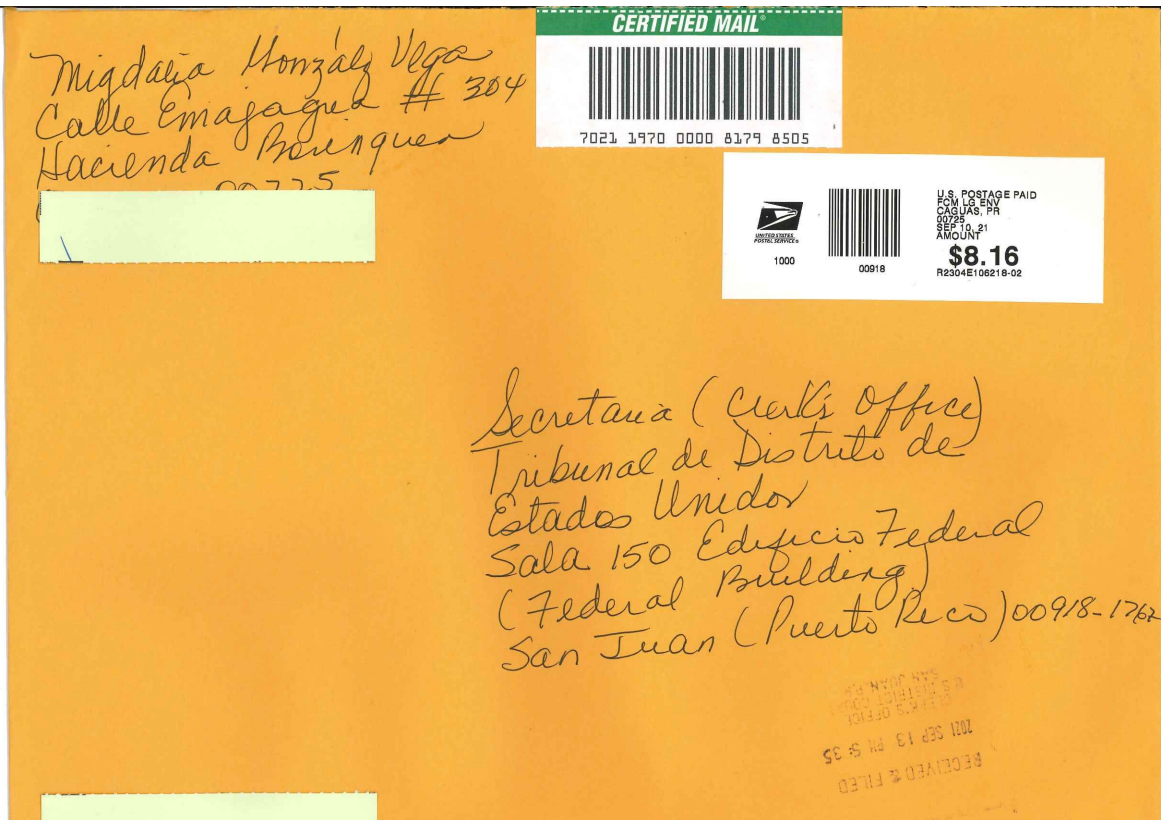 Migdalia Gonzálz Vega
Calle Emajagua # 304
Hacienda Borinquen
00725
CERTIFIED MAIL®
7021 1970 0000 8179 8505
UNITED STATES
POSTAL SERVICE®
1000
00918
U.S. POSTAGE PAID
FCM LG ENV
CAGUAS, PR
00725
SEP 10, 21
AMOUNT
$8.16
R2304E106218-02
Secretaria (Clerk's Office)
Tribunal de Distrito de
Estados Unidos
Sala 150 Edificio Federal
(Federal Building)
San Juan (Puerto Rico) 00918-1762
RECEIVED & FILED
2021 SEP 13 PM 5:35
CLERK'S OFFICE
U.S DISTRICT COURT
SAN JUAN, P.R.